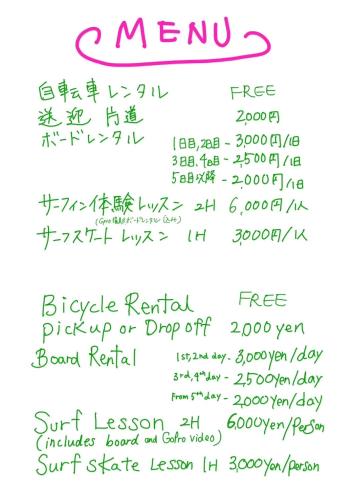 MENU
自転車レンタル FREE
送迎 片道 2,000円
ボードレンタル 1日目,2日目 - 3,000円/1日
3日目,4日目 - 2,500円/1日
5日目以降 - 2,000円/1日
サーフィン体験レッスン 2H 6,000円/1人
(GoPro撮影,ボードレンタル込み)
サーフスケートレッスン 1H 3,000円/1人
Bicycle Rental FREE
pickup or Drop off 2,000 yen
Board Rental 1st, 2nd day - 3,000yen/day
3rd, 4th day - 2,500yen/day
From 5th day - 2,000yen/day
Surf Lesson 2H 6,000yen/person
(includes board and GoPro video)
Surf skate Lesson 1H 3,000yen/person